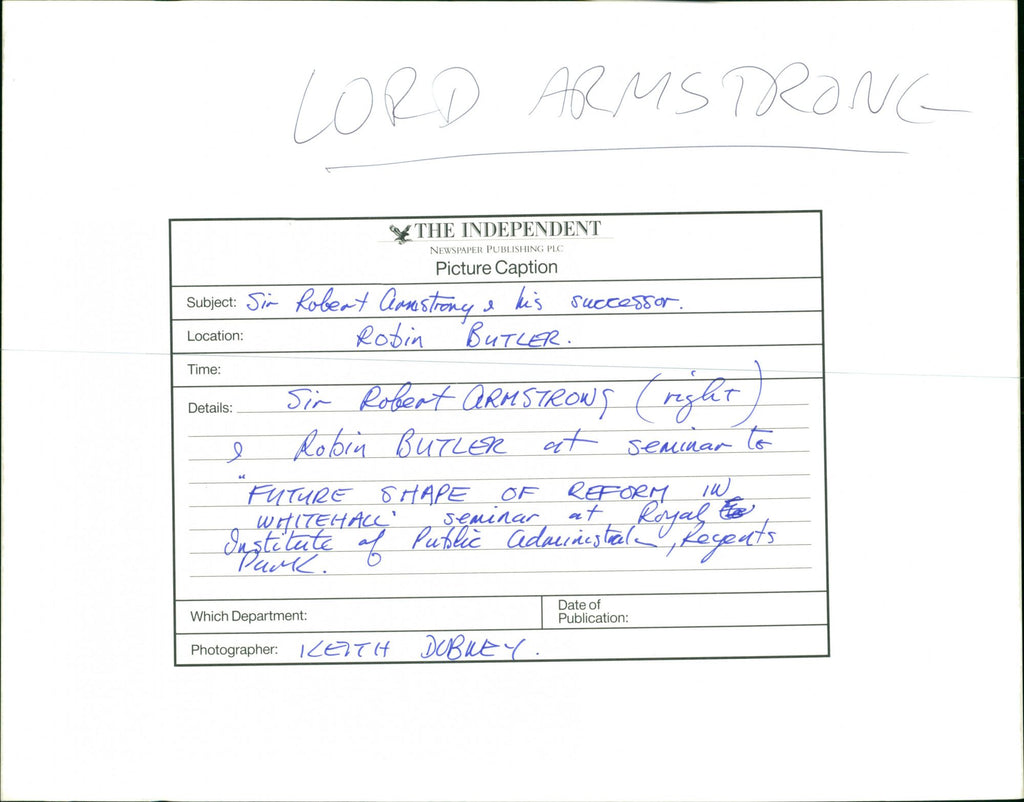 LORD ARMSTRONG
THE INDEPENDENT
NEWSPAPER PUBLISHING PLC
Picture Caption
Subject: Sir Robert Armstrong & his successor.
Location: Robin BUTLER.
Time:
Details: Sir Robert ARMSTRONG (right)
& Robin BUTLER at seminar to
"FUTURE SHAPE OF REFORM IN
WHITEHALL' seminar at Royal
Institute of Public Administration, Regents
Park.
Which Department:
Date of
Publication:
Photographer: KEITH DOBNEY.